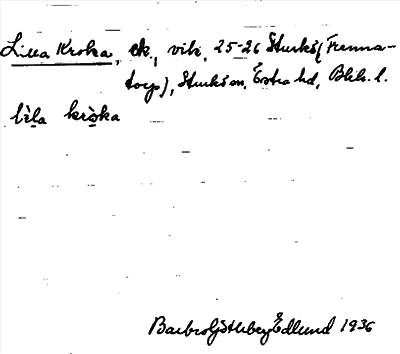 Lilla Kroka, ek., vik, 25-26 Sturkö (Tremma-
torp), Sturkö sn, Östra hd, Blek. l.
lìla kròka
Barbro Götherg Edlund 1936